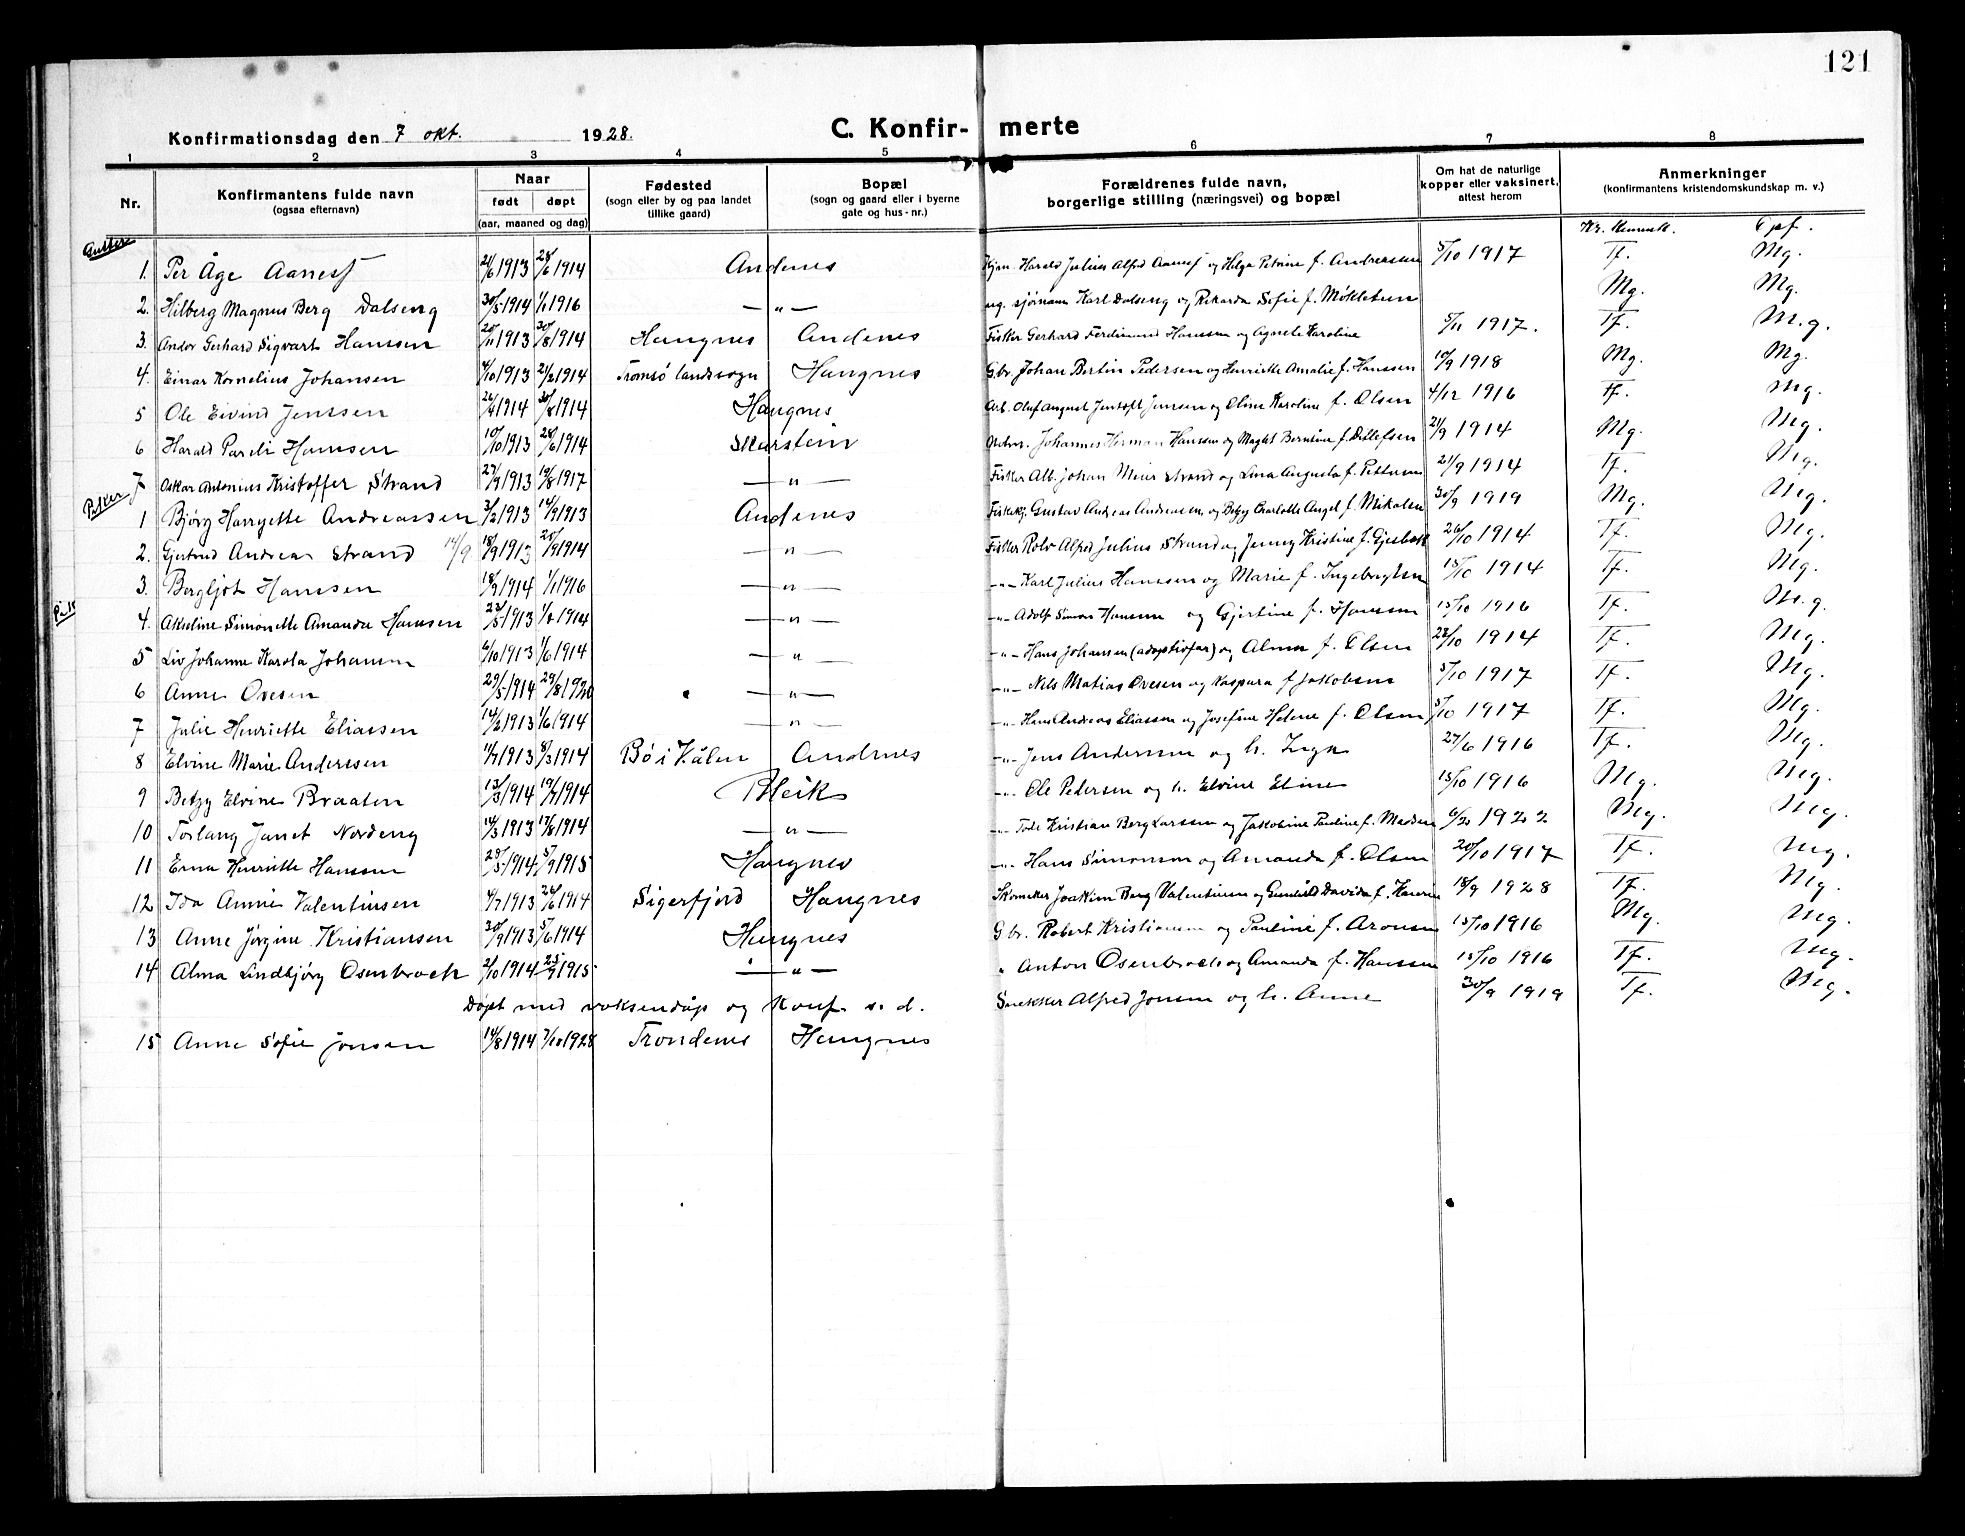 121
Konfirmationsdag den 7 okt. 1928. C. Konfir- merte
1 2 3 4 5 6 7 8
Nr. Konfirmantens fulde navn (ogsaa efternavn) Naar født døpt (aar, maaned og dag) Fødested (sogn eller by og paa landet tillike gaard) Bopæl (sogn og gaard eller i byerne gate og hus-nr.) Forældrenes fulde navn, borgerlige stilling (næringsvei) og bopæl Om hat de naturlige kopper eller vaksinert, attest herom Anmerkninger (konfirmantens kristendomskundskap m. v.)
Gutter
1. Per Åge Aanes 1913 28/6 1914 Andenes Harald Julius Alfred Aanes og Helga Petrine f. Andreassen 5/10 1917 Tf. Mg.
2. Hilberg Magnus Berg Dalseng 30/5 1914 1/1 1916 — „ — Karl Dalseng og Rikarda Sofie f. Møkleteun Mg. Mg.
3. Andor Gerhard Sigvart Hanssen 20/11 1913 30/8 1914 Haugnes Andenes Fisker Gerhard Ferdinand Hanssen og Agnete Karoline 5/11 1917. Tf. M.g.
4. Einar Kornelius Johansen 1913 21/2 1914 Tromsø landssogn Haugnes G.br. Johan Bertin Pedersen og Henriette Amalie f. Hanssen 10/9 1918 Mg. Mg.
5 Ole Eivind Jenssen 1914 1914 Haugnes Arb. Oluf August Jentoft Jenssen og Oline Karoline f. Olsen 4/12 1916 Tf. Mg.
6 Harald Pareli Hanssen 10/10 1913 28/6 1914 Skarstein Johannes Herman Hanssen og Maght Berntine f. Detlefsen 21/9 1914 Mg. Mg.
7 Oskar Antonius Kristoffer Strand 27/9 1913 19/8 1917 — „ — Fisker Alb. Johan Meier Strand og Lina Augusta f. Pettersen 21/9 1914 Tf. Mg.
Piker
1 Bjørg Harryette Andreassen 3/2 1913 14/9 1913 Andenes Gustav Andreas Andreassen og Betzy Charlotte Angel f. Mikalsen 30/9 1919 Mg. Mg.
2. Gjertrud Andrea Strand 14/9 18/9 1913 20/9 1914 — „ — Fisker Rolv Alfred Julius Strand og Jenny Kristine f. Gjesbakk 26/10 1914 Tf. Mg.
3. Bergljot Hanssen 18/9 1914 1/1 1916 — „ — — „ — Karl Julius Hanssen og Marie f. Ingebrigtsen 15/10 1914 Tf. Mg.
4. Akseline Simonette Amanda Hanssen 1913 1914 — „ — — „ — Adolf Simon Hanssen og Gjertine f. Hanssen 15/10 1916 Tf. M.g.
5 Liv Johanne Karola Johansen 6/10 1913 1/6 1914 — „ — — „ — Hans Johansen (adoptivfar) og Alma f. Olsen 22/10 1914 Tf. Mg.
6 Anne Ovesen 29/5 1914 29/8 1920 — „ — — „ — Nils Matias Ovesen og Kaspara f Jakobsen 5/10 1917 Tf. Mg.
7 Julie Henriette Eliassen 14/2 1913 1/6 1914 — „ — — „ — Hans Andreas Eliassen og Josefine Helene f. Olsen 5/10 1917 Tf. Mg.
8 Elvine Marie Anderssen 11/7 1913 8/3 1914 Bø i Andnes — „ — Jens Anderssen og h. Inga 27/6 1916 Tf. Mg.
9 Betzy Elvine Braaten 13/3 1914 19/7 1914 Bleik — „ — Ole Pedersen og h. Elvine Eline 15/10 1916 Mg. Mg.
10 Torlaug Janet Nordeng 14/3 1913 17/8 1914 — „ — — „ — Tode Kristian Berg Larssen og Jakobine Pauline f. Madsen 1922 Mg. Mg.
11 Erna Henriette Hanssen 29/5 1914 5/9 1915 Haugnes — „ — Hans Simonsen og Amanda f. Olsen 20/10 1917 Tf. Mg.
12 Ida Annie Valentinsen 4/7 1913 26/6 1914 Sigerfjord Haugnes Skomaker Joakim Berg Valentinsen og Gunhild Davida f. 18/9 1928 Tf. Mg.
13 Anne Jørgine Kristiansen 30/9 1913 5/6 1914 Haugnes G.br. Robert Kristiansen og Pauline f. Aronsen 15/10 1916 Mg. Mg.
14 Alma Lindbjørg Osenbroch 2/10 1914 25/9 1915 — „ — „ Anton Osenbroch og Amanda f. Hanssen 15/10 1916 Tf. Mg.
Døpt med voksendåp og Konf. s. d.
15 Anne Sofie Jonsen 14/8 1914 7/10 1928 Trondenes Haugnes Snekker Alfred Jonsen og h. Anne 30/9 1919 Tf. Mg.